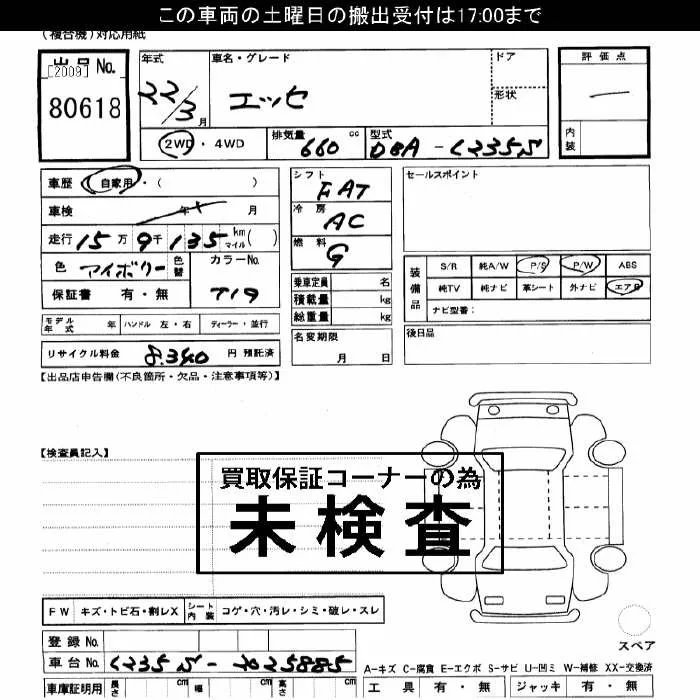 この車両の土曜日の搬出受付は17:00まで
(複合機)対応用紙
出品 No.
[2009]
80618
年式 22/3月
車名・グレード
エッセ
ドア
形状
評価点
内装
2WD・4WD
排気量 660 cc
型式 DBA-L235S
車歴 自家用・( )
車検 年 月
走行 15万9千135 km マイル( )
色 アイボリー 色替
カラーNo. T19
保証書 有・無
シフト FAT
冷房 AC
燃料 G
乗車定員 名
積載量 kg
総重量 kg
セールスポイント
装備品
S/R 純A/W P/S P/W ABS
純TV 純ナビ 革シート 外ナビ エアB
ナビ型番:
モデル年式 年 ハンドル 左・右 ディーラー・並行
名変期限
月 日
後日品
リサイクル料金 8.340 円 預託済
【出品店申告欄(不良箇所・欠品・注意事項等)】
【検査員記入】
買取保証コーナーの為
未検査
FW キズ・トビ石・割レX シート内装 コゲ・穴・汚レ・シミ・破レ・スレ
スペア
登録 No.
車台 No. L235S-2025885
A-キズ C-腐食 E-エクボ S-サビ U-凹ミ W-補修 XX-交換済
車庫証明用 長さ cm 幅 cm 高さ cm
工具 有・無 ジャッキ 有・無